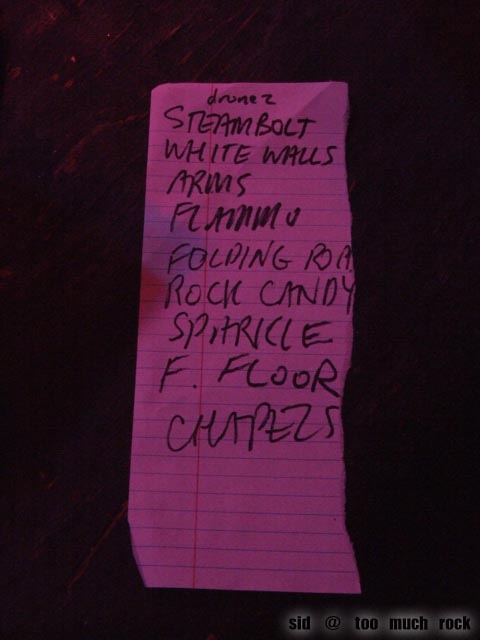 drone 2
STEAMBOLT
WHITE WALLS
ARMS
FLAMMO
FOLDING ROA
ROCK CANDY
SPARKLE
F. FLOOR
CHAPELS
sid @ too_much_rock